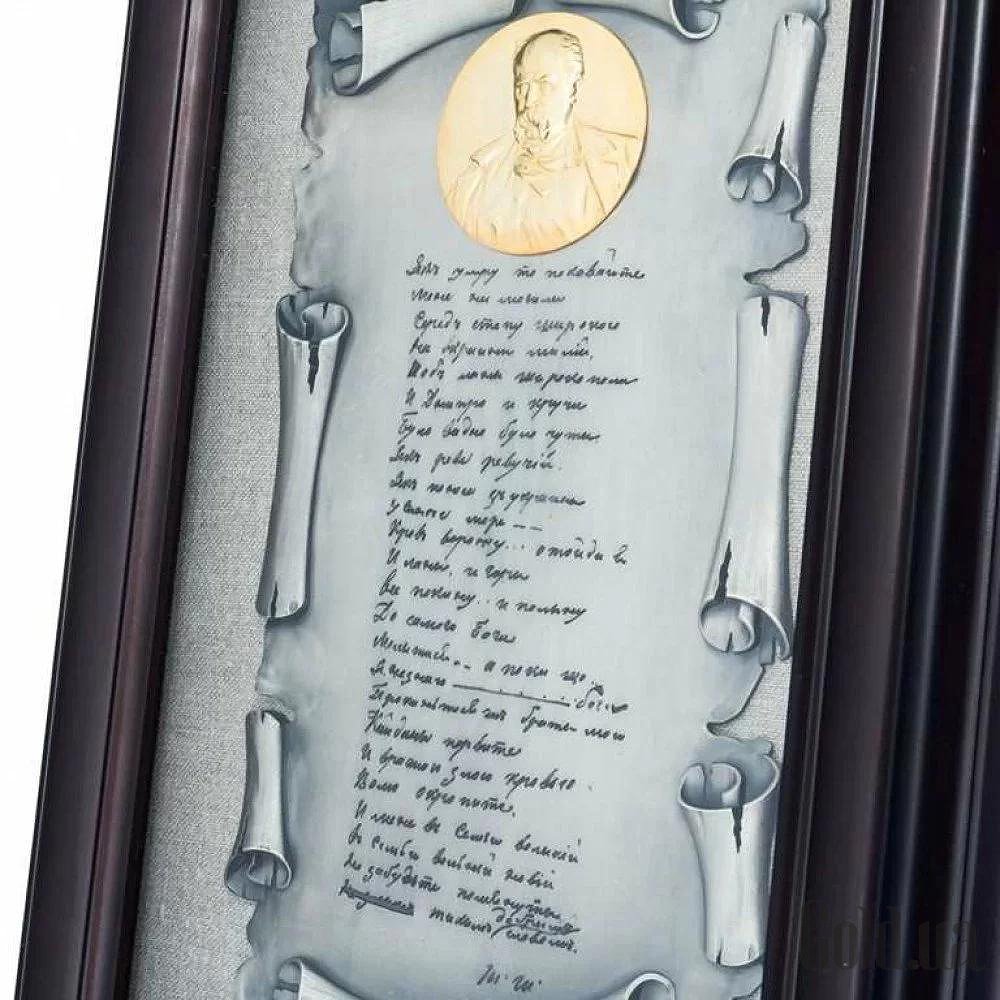 Якъ умру то поховайте
Мене на могили
Середъ степу широкого
На вкраини милій,
Щобъ лани широкополи
И Днипро и кручи
Було видно було чути
Якъ реве ревучій.
Якъ понесе зъ украини
У синее море --
Кровъ ворожу... отойди я
И лани, и гори
Все покину.. и полыну
До самого бога
Молитися.. а поки що
Я незнаю бога
Поховайте
Кайданы порвите
И вражою злою кровъю
Волю окропите.
И мене въ семьи великій
Въ семьи вольній новій
Не забудьте помянути
тихимъ словомъ.
Т. Ш.
Gold.ua